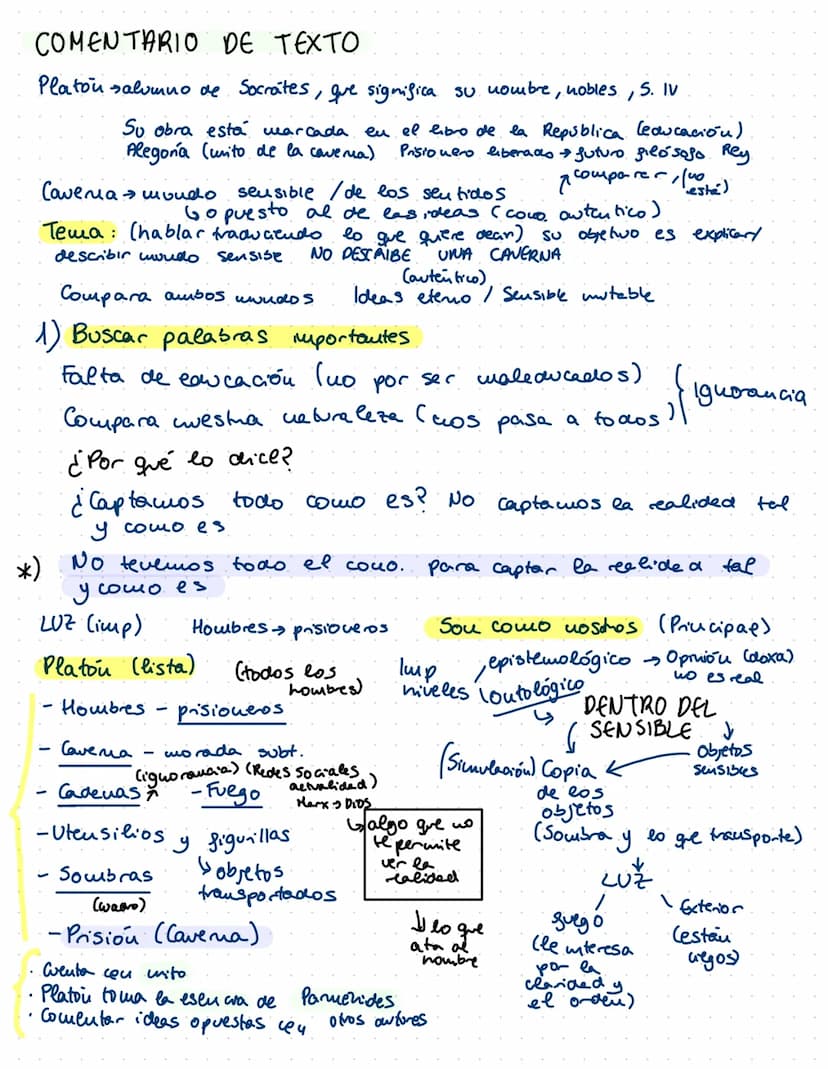 COMENTARIO DE TEXTO
Platón → alumno de Socrátes, que significa su nombre, nobles, S. IV
Su obra está marcada en el libro de la República (educación)
Alegoría (mito de la caverna) Prisionero liberado → futuro filósofo Rey
comparer, (no está)
Caverna → mundo sensible / de los sentidos
↳ opuesto al de las ideas (cono. autentico)
Tema: (hablar traduciendo lo que quiere decir) su objetivo es explicar/
describir mundo sensible NO DESCRIBE UNA CAVERNA
(auténtico)
Compara ambos mundos Ideas eterno / Sensible mutable
1) Buscar palabras importantes
Falta de educación (no por ser maleducados)
Compara nuestra naturaleza (nos pasa a todos)
Ignorancia
¿Por qué lo dice?
¿Captamos todo como es? No captamos la realidad tal
y como es
*) No tenemos todo el cono. para captar la realidad tal
y como es
LUZ (imp) Hombres → prisioneros Son como nostros (Principal)
Platón (lista) (todos los hombres)
Imp niveles
epistemológico → Opinión (doxa) no es real
ontológico
↳ DENTRO DEL SENSIBLE
- Hombres - prisioneros
- Caverna - morada subt.
(ignorancia) (Redes Sociales actualidad)
Marx → Dios
- Cadenas - Fuego
↳ algo que no te permite ver la realidad
- Utensilios y figurillas
↳ objetos transportados
- Sombras
- Prisión (Caverna)
↓ lo que ata al hombre
Objetos sensibles
(Simulación) Copia de los objetos
(Sombra y lo que transporte)
↓
LUZ
fuego
(le interesa por la claridad y el orden)
Exterior
(están ciegos)
· Cuenta con mito
· Platón toma la esencia de Parménides
· Comentar ideas opuestas con otros autores